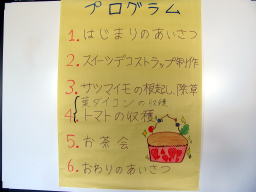 プログラム
1. はじまりのあいさつ
2. スイーツデコストラップ制作
3. サツマイモの根起し、除草
葉ダイコンの収穫
4. トマトの収穫
5. お茶会
6. おわりのあいさつ